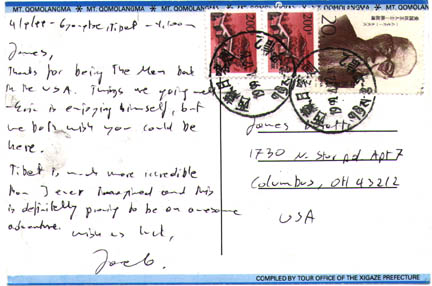 MT. QOMOLANGMA ★ MT. QOMOLANGMA ★ MT. QOMOLANGMA
Tibet
James,
Thanks for being the Man back
in the USA. Things are going well
is enjoying himself, but
we both wish you could be
here.
Tibet is much more incredible
than I ever imagined and this
is definitely proving to be an awesome
adventure.
wish us luck,
Jacob.
20
200
200
James
1730 N. Star Rd Apt 7
Columbus, OH 43212
USA
COMPILED BY TOUR OFFICE OF THE XIGAZE PREFECTURE